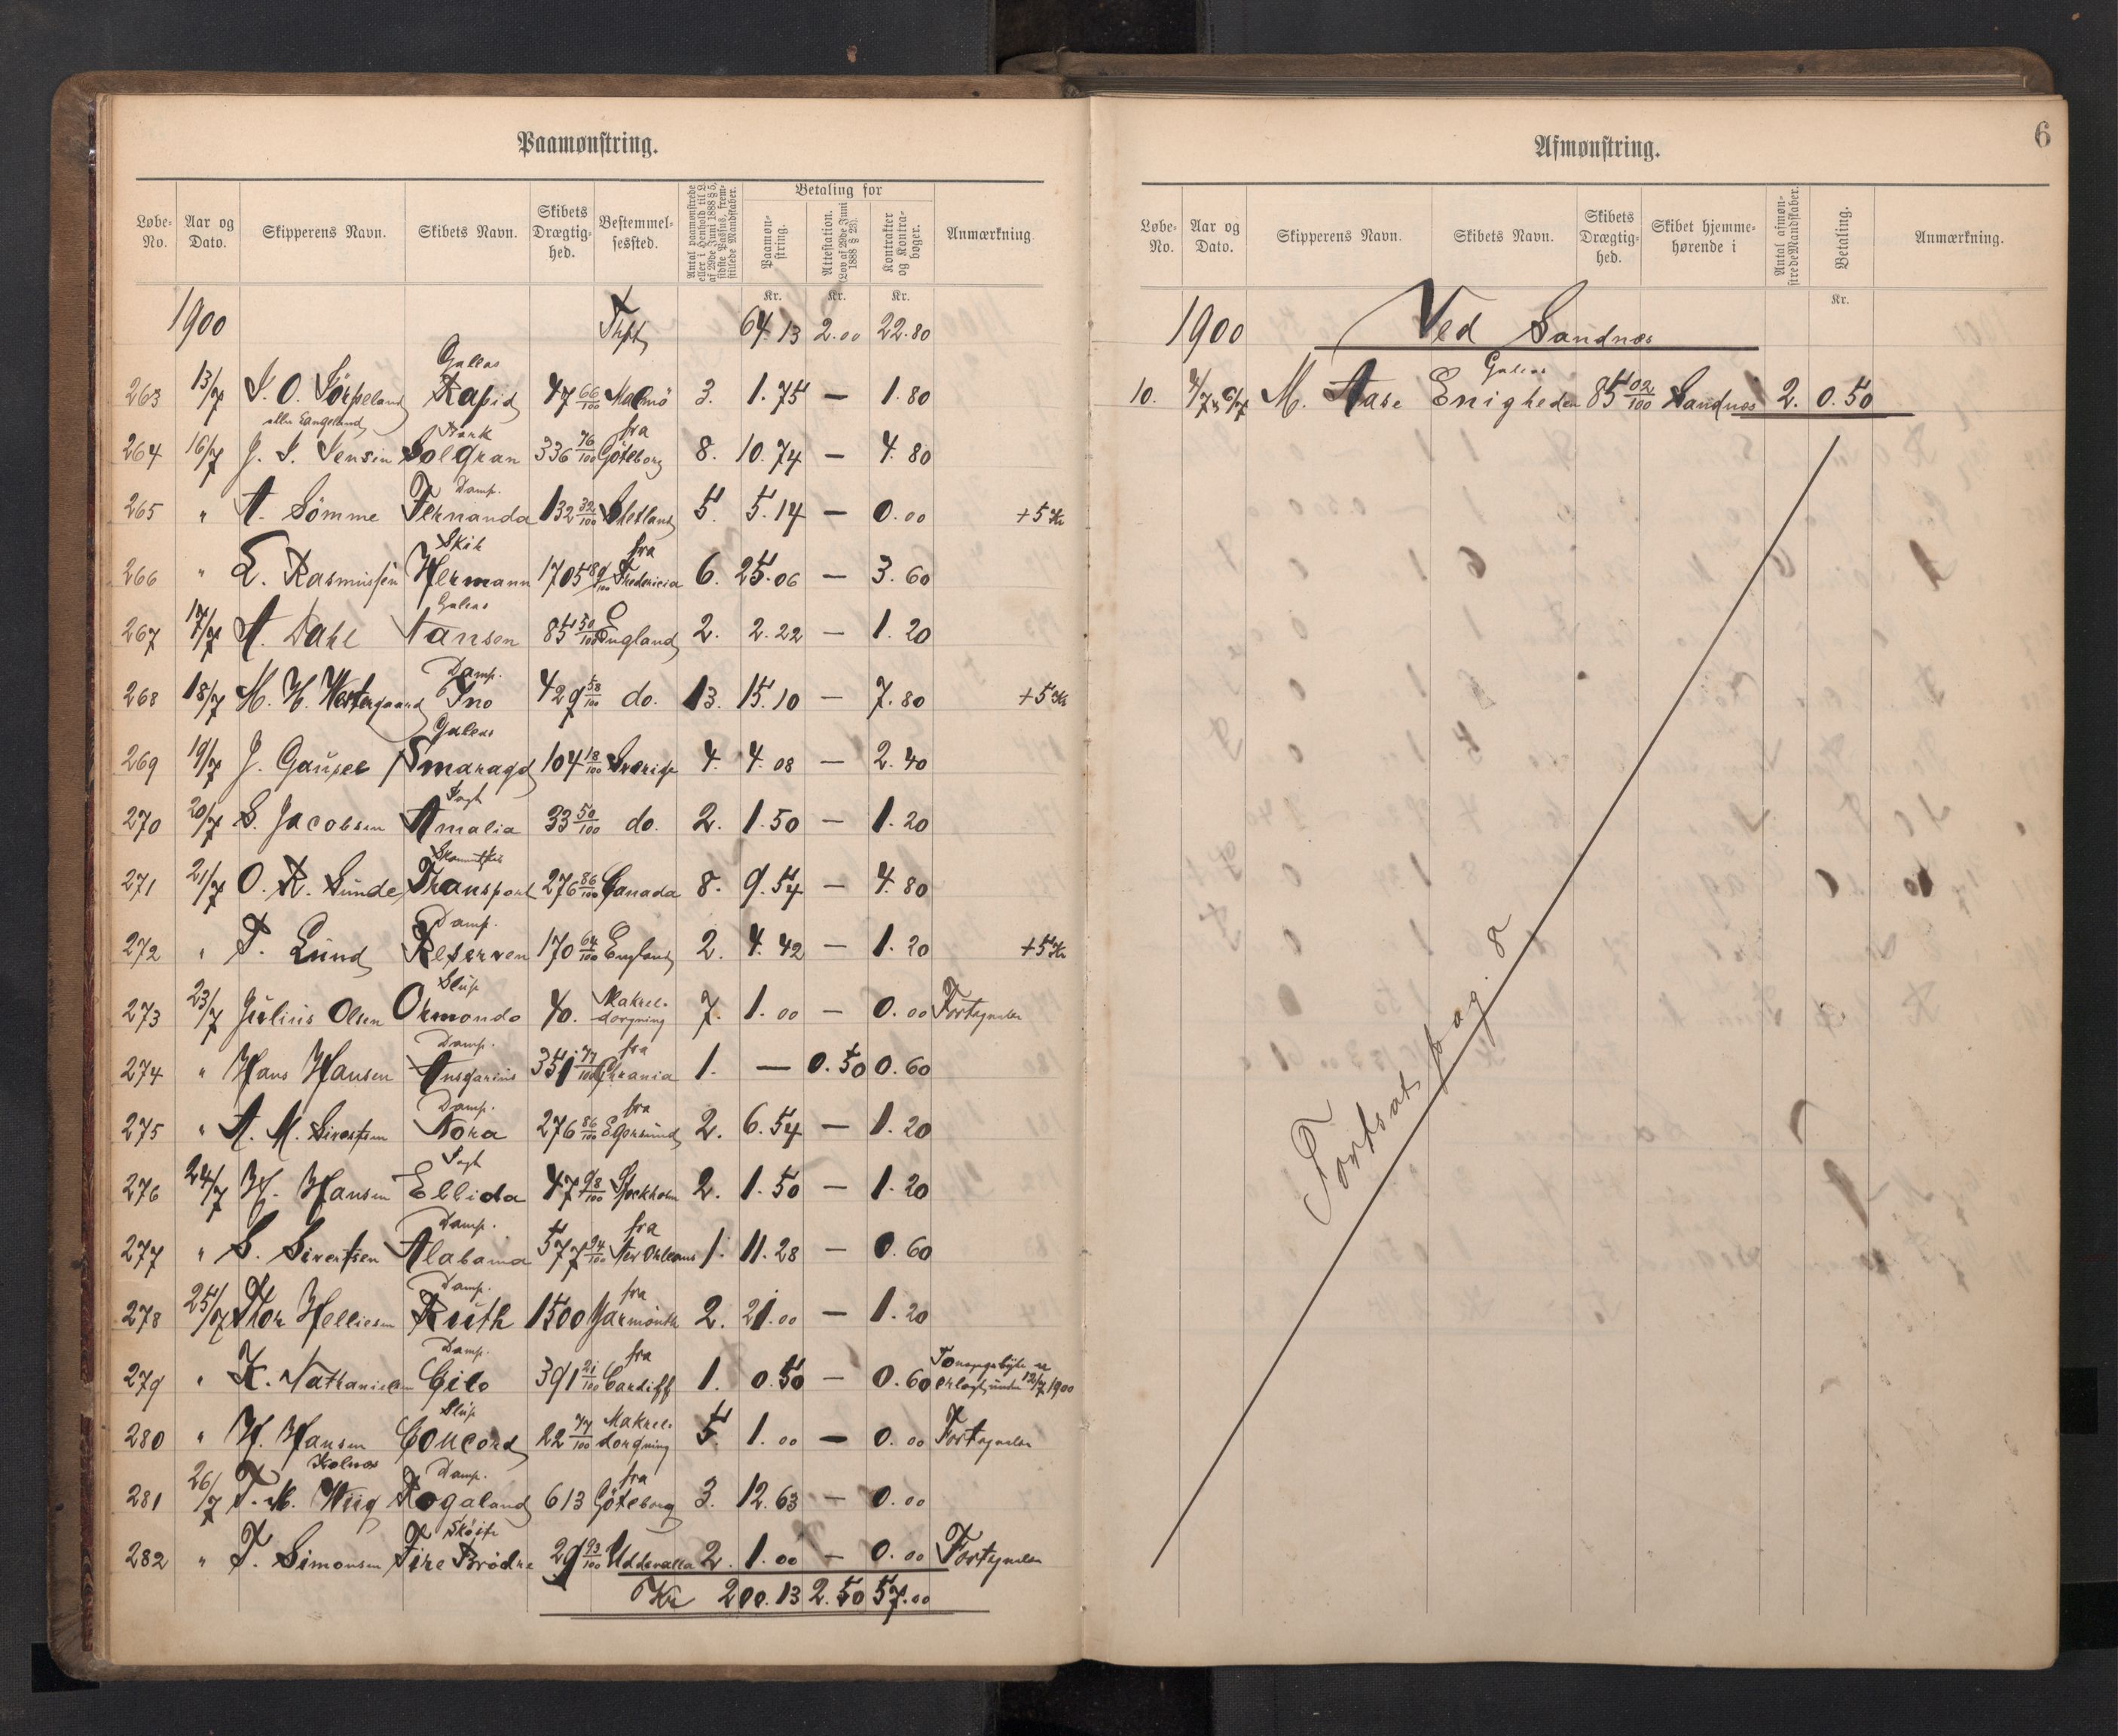 Paamønstring.
Løbe-No. Aar og Dato. Skipperens Navn. Skibets Navn. Skibets Drægtighed. Bestemmelsessted. Antal paamønstrede eller i Henhold til L. af 29de Juni 1888 § 5, sidste Passus, fremstillede Mandskaber. Betaling for Paamønstring. Attestation. (Lov af 29de Juni 1888 § 23). Kontrakter og Kontrabøger. Anmærkning.
Kr. Kr. Kr.
1900 64.13 2.00 22.80
Galeas
263 13/7 Rapid 47 66/100 Malmö 3. 1.75 — 1.80
eller Langeland Bark fra
264 16/7 J. S. Jensen Solgran 336 76/100 Göteborg 8. 10.74 — 4.80
Damp.
265 " A. Sömme Fernanda 132 32/100 Shetland 5. 5.14 — 0.00 +5 Kr
Skib fra
266 " E. Rasmussen Hermann 1705 89/100 Fredericia 6. 25.06 — 3.60
Galeas
267 17/7 A. Dahl Nansen 85 50/100 England 2. 2.22 — 1.20
Damp.
268 18/7 M. H. Westergaard Ino 429 58/100 do. 13. 15.10 — 7.80 +5 Kr
Galeas
269 19/7 J. Gausel Smaragd 104 18/100 Sverige 4. 4.08 — 2.40
Jagt
270 20/7 S. Jacobsen Amalia 33 50/100 do. 2. 1.50 — 1.20
271 21/7 O. R. Sunde Transport 276 86/100 Canada 8. 9.54 — 4.80
Damp.
272 " T. Lund Reserven 170 64/100 England 2. 4.42 — 1.20 +5 Kr
Slup
273 23/7 Julius Olsen Ormondo 40. Makreldorgning 7. 1.00 — 0.00 Fortegnelse
Damp. fra
274 " Hans Hansen Ansgarius 351 77/100 Chrania 1. — 0.50 0.60
Damp. fra
275 " A. M. Sivertsen Nora 276 86/100 Egersund 2. 6.54 — 1.20
Jagt
276 24/7 H. Hansen Ellida 47 98/100 Stockholm 2. 1.50 — 1.20
Damp. fra
277 " S. Sivertsen Alabama 577 24/100 New Orleans 1. 11.28 — 0.60
Damp. fra
278 25/7 Thor Helliesen Ruth 1500 Yarmouth 2. 21.00 — 1.20
Damp. fra
279 " K. Nathanielsen Gilo 391 21/100 Cardiff 1. 0.50 — 0.60 erlagt under 12/7 1900
Slup
280 " H. Hansen Concord 22 77/100 Makreldorgning 5. 1.00 — 0.00 Fortegnelse
Kolnes Damp. fra
281 26/7 T. M. Wiig Rogaland 613 Göteborg 3. 12.63 — 0.00
Skøite
282 " T. Simonsen Fire Brødre 29 93/100 Uddevalla 2. 1.00 — 0.00 Fortegnelse
Kr 200.13 2.50 57.00
6
Afmønstring.
Løbe-No. Aar og Dato. Skipperens Navn. Skibets Navn. Skibets Drægtighed. Skibet hjemmehørende i Antal afmønstrede Mandskaber. Betaling. Anmærkning.
Kr.
1900 Ved Sandnæs
Galeas
10. 4/7 & 6/7 M. Aase Enigheden 85 02/100 Sandnæs 2. 0.50
Fortsat pag. 8